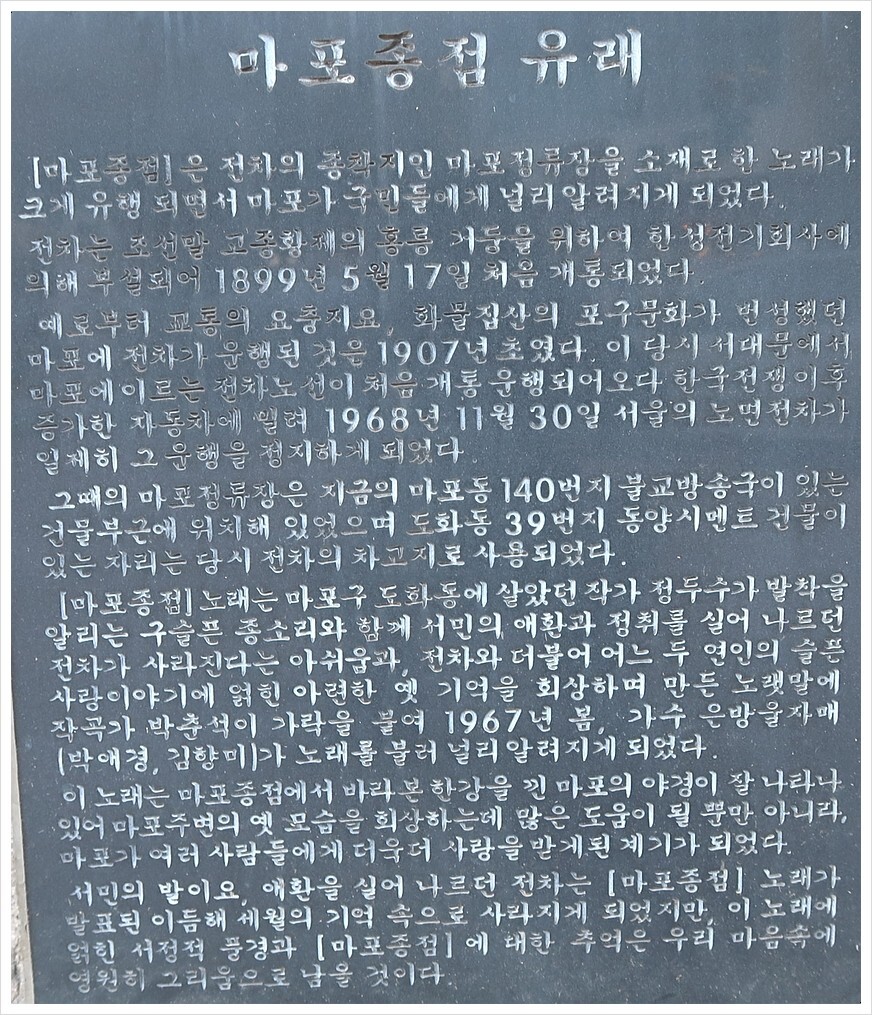 마포종점 유래
[마포종점]은 전차의 종착지인 마포정류장을 소재로 한 노래가
크게 유행 되면서 마포가 국민들에게 널리 알려지게 되었다.
전차는 조선말 고종황제의 홍릉 거둥을 위하여 한성전기회사에
의해 부설되어 1899년 5월 17일 처음 개통되었다.
예로부터 교통의 요충지요, 화물집산의 포구문화가 번성했던
마포에 전차가 운행된 것은 1907년 초였다. 이 당시 서대문에서
마포에 이르는 전차노선이 처음 개통 운행되어오다 한국전쟁이후
증가한 자동차에 밀려 1968년 11월 30일 서울의 노면전차가
일제히 그 운행을 정지하게 되었다.
그때의 마포정류장은 지금의 마포동 140번지 불교방송국이 있는
건물부근에 위치해 있었으며 도화동 39번지 동양시멘트 건물이
있는 자리는 당시 전차의 차고지로 사용되었다.
[마포종점] 노래는 마포구 도화동에 살았던 작가 정두수가 발착을
알리는 구슬픈 종소리와 함께 서민의 애환과 정취를 실어 나르던
전차가 사라진다는 아쉬움과, 전차와 더불어 어느 두 연인의 슬픈
사랑이야기에 얽힌 아련한 옛 기억을 회상하며 만든 노랫말에
작곡가 박춘석이 가락을 붙여 1967년 봄, 가수 은방울자매
(박애경, 김향미)가 노래를 불러 널리 알려지게 되었다.
이 노래는 마포종점에서 바라본 한강을 낀 마포의 야경이 잘 나타나
있어 마포주변의 옛 모습을 회상하는데 많은 도움이 될 뿐만 아니라,
마포가 여러 사람들에게 더욱더 사랑을 받게된 계기가 되었다.
서민의 발이요, 애환을 실어 나르던 전차는 [마포종점] 노래가
발표된 이듬해 세월의 기억 속으로 사라지게 되었지만, 이 노래에
얽힌 서정적 풍경과 [마포종점]에 대한 추억은 우리 마음속에
영원히 그리움으로 남을 것이다.